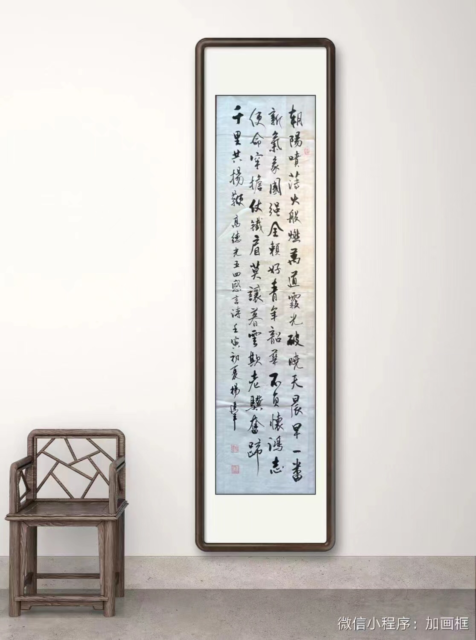 朝陽噴薄火般燃萬道霞光破曉天晨早一番
新氣象國强全賴好青年韶華不負懷鴻志
使命牢擔仗鐵肩莫讓暮雲欺老驥奮蹄
千里共揚鞭 高德光五四感言詩壬寅初夏楊
微信小程序：加画框